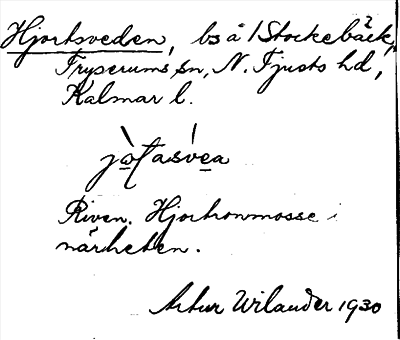 Hjortsveden, bs å 1 Stockebäck,
Tryserums sn, N. Tjusts hd,
Kalmar l.
jo̲ṭasve̲a
Riven. Hjortronmosse i
närheten.
Artur Wilander 1930